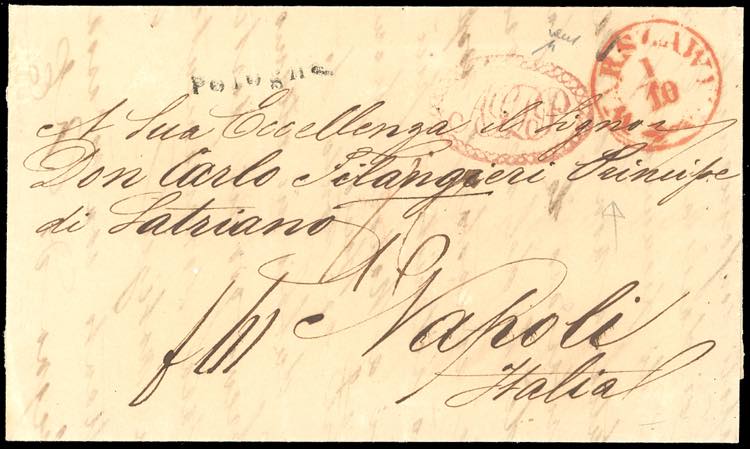 Pologne
WARSZAWA
1
10
A Sua Eccellenza il Signor
Don Carlo Filangieri Principe
di Satriano
Napoli
Italia